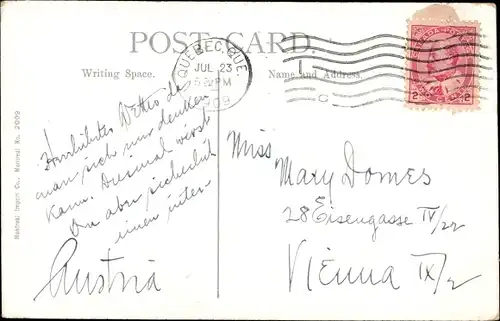 POST CARD.
QUEBEC, QUE
JUL 23
PM
1908
CANADA POSTAGE
2 2
Writing Space.
Name and Address.
Montreal Import Co., Montreal No. 2009
Herrlichstes Wetter da
man sich nur denken
kann. Diesmal wirst
Du aber sicherlich
einen inter-
Austria
Miss
Mary Domes
28 Eisengasse IV/22
Vienna IX/2